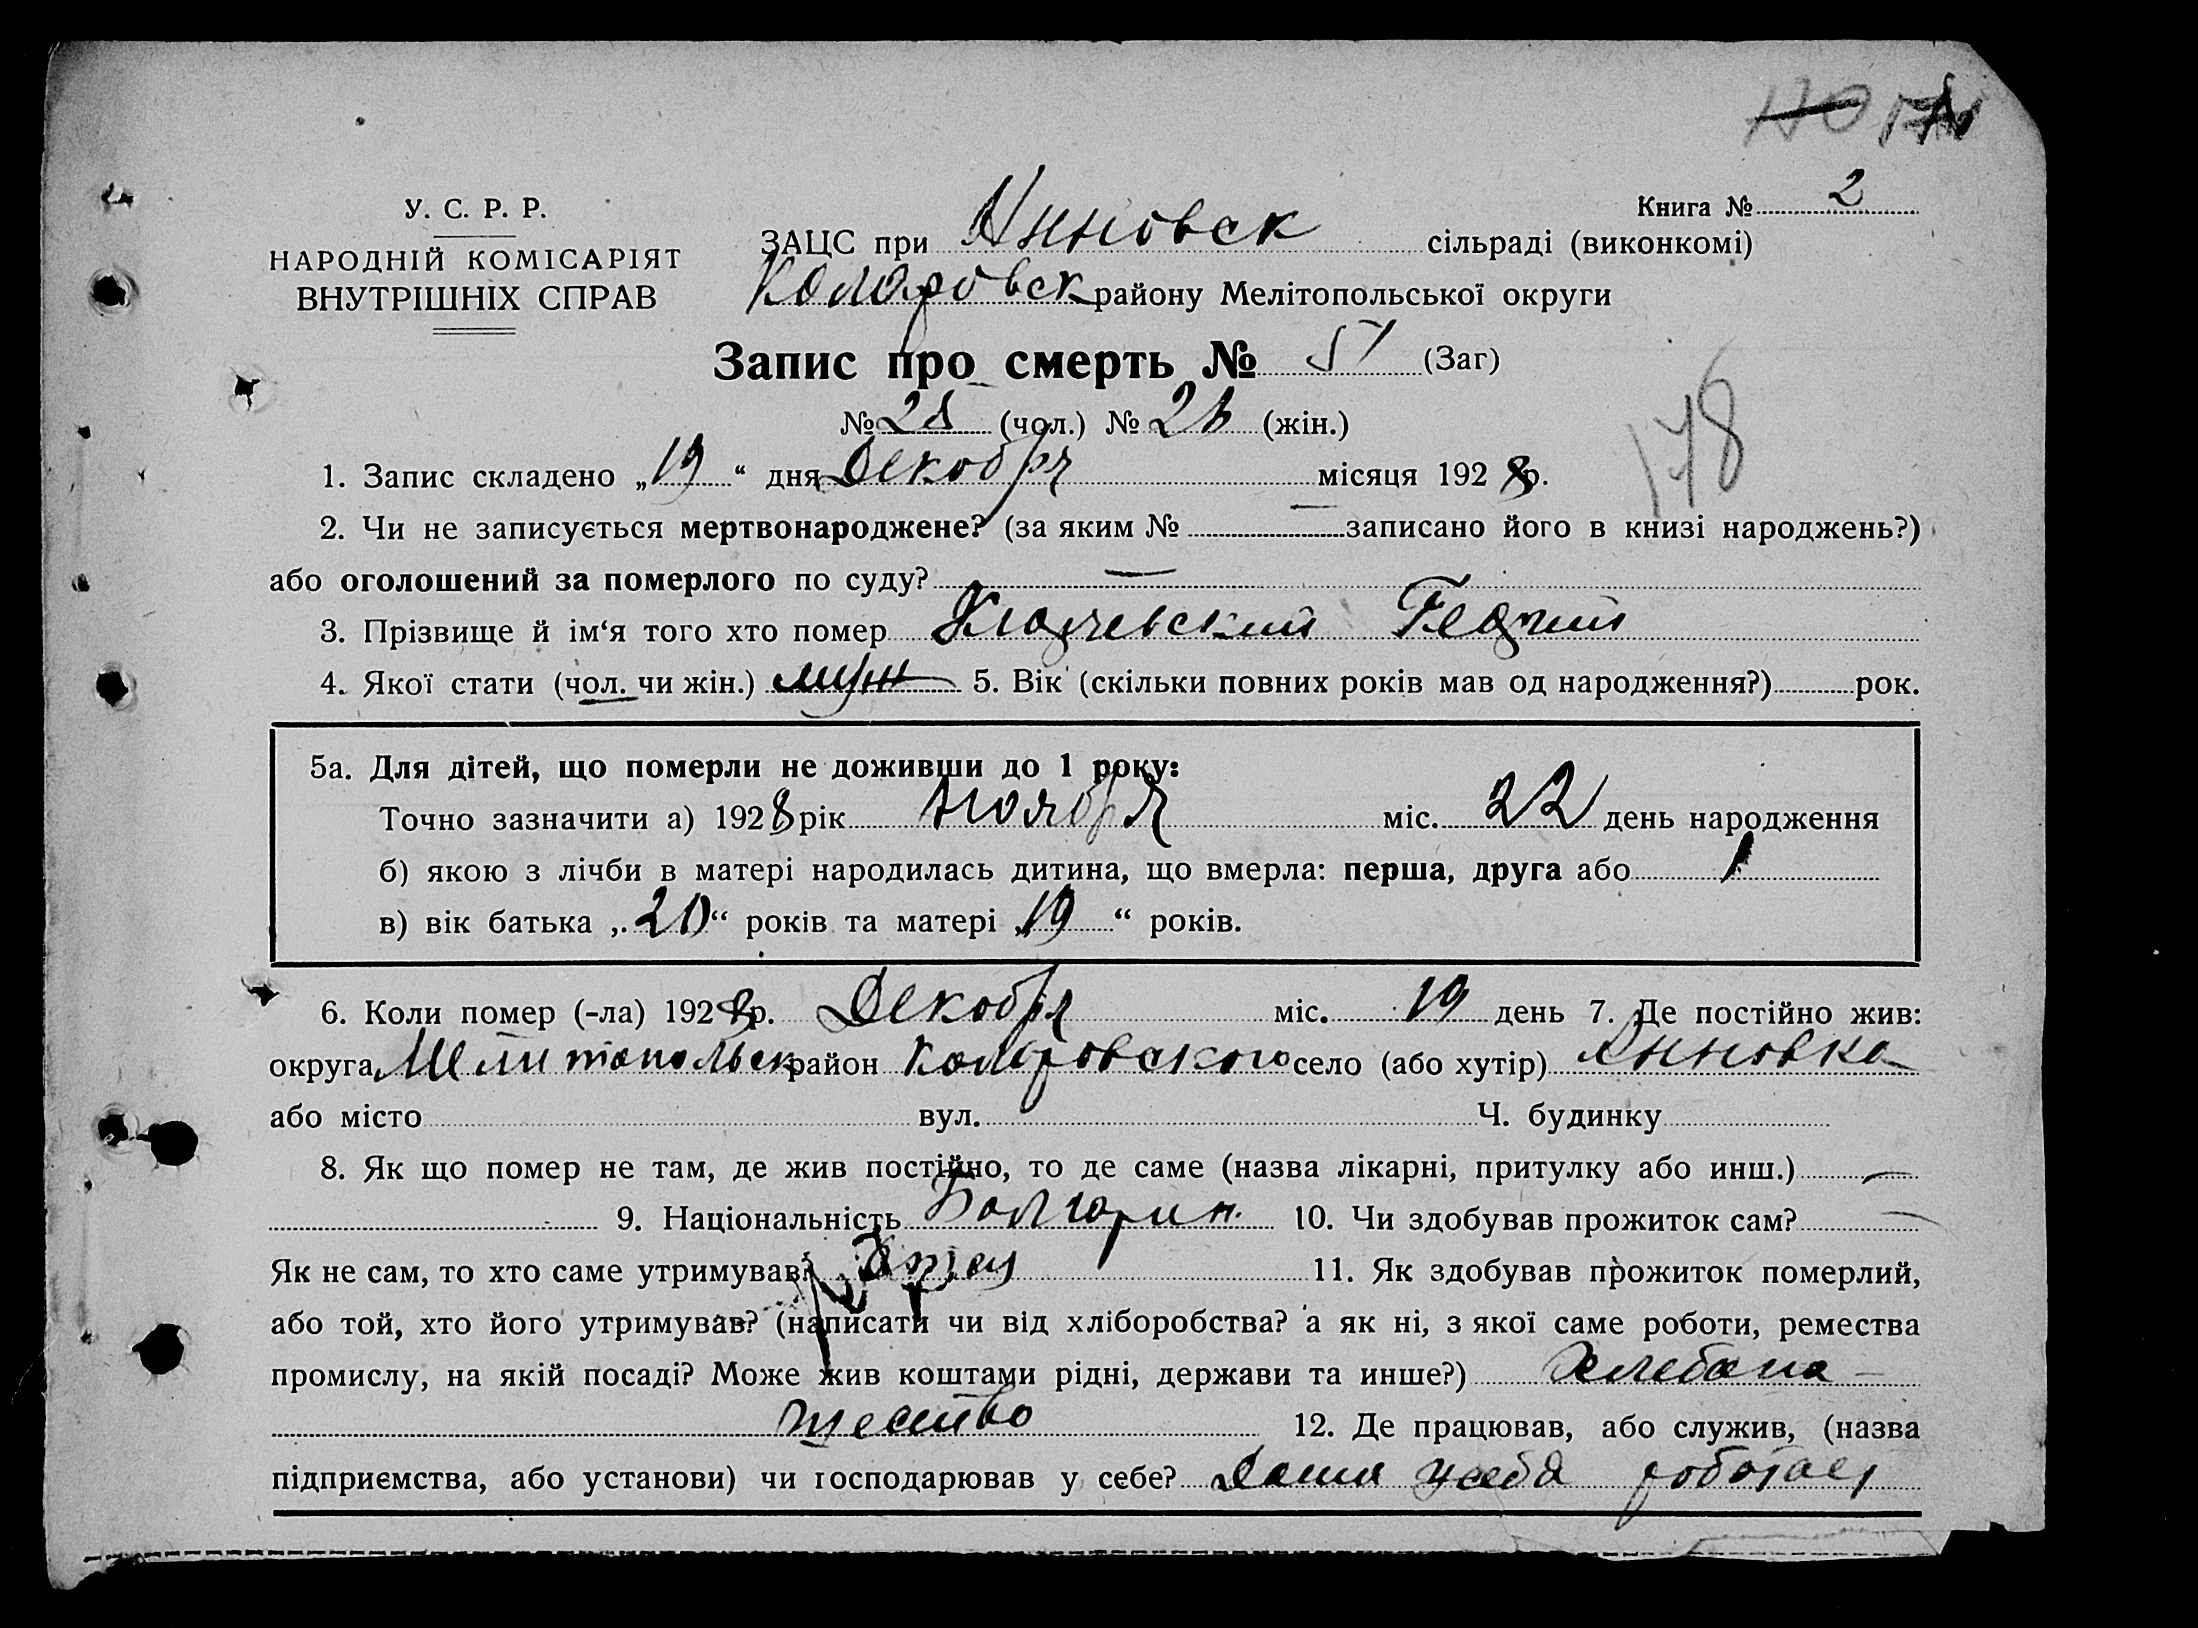 Книга № 2
У. С. Р. Р.
НАРОДНІЙ КОМІСАРІЯТ
ВНУТРІШНІХ СПРАВ
ЗАЦС при Анновск сільраді (виконкомі)
Коларовск району Мелітопольської округи
Запис про смерть № 51 (Заг)
№ 25 (чол.) № 26 (жін.)
178
1. Запис складено „19“ дня Декобря місяця 1928 р.
2. Чи не записується мертвонароджене? (за яким № — записано його в книзі народжень?)
або оголошений за померлого по суду? —
3. Прізвище й ім‘я того хто помер Георгий
4. Якої стати (чол. чи жін.) муж 5. Вік (скільки повних років мав од народження?) рок.
5а. Для дітей, що померли не доживши до 1 року:
Точно зазначити а) 1928 рік Ноября міс. 22 день народження
б) якою з лічби в матері народилась дитина, що вмерла: перша, друга або 1
в) вік батька „20“ років та матері „19“ років.
6. Коли помер (-ла) 1928 р. Декобря міс. 19 день 7. Де постійно жив:
округа Мелитопольск район Коларовского село (або хутір) Анновка
або місто вул. Ч. будинку
8. Як що помер не там, де жив постійно, то де саме (назва лікарні, притулку або инш.) —
9. Національність Болгарин. 10. Чи здобував прожиток сам? —
Як не сам, то хто саме утримував? Отец 11. Як здобував прожиток померлий,
або той, хто його утримував? (написати чи від хліборобства? а як ні, з якої саме роботи, ремества
промислу, на якій посаді? Може жив коштами рідні, держави та инше?) Хлебопа-
шество 12. Де працював, або служив, (назва
підприємства, або установи) чи господарював у себе? Дома у себя роботает